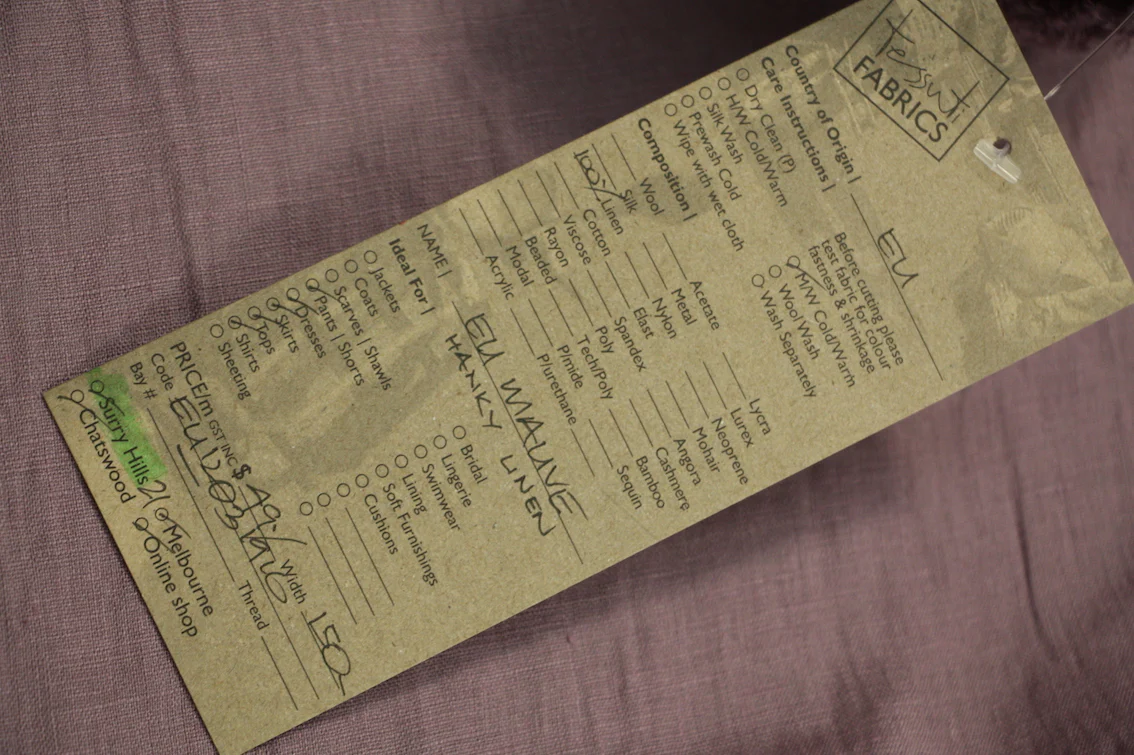 tessuti
FABRICS
Country of Origin | EU
Care Instructions |
Dry Clean (P)
H/W Cold/Warm
Silk Wash
Prewash Cold
Wipe with wet cloth
Before cutting please
test fabric for colour
fastness & shrinkage
M/W Cold/Warm
Wool Wash
Wash Separately
Composition |
Wool
Silk
100% Linen
Cotton
Viscose
Rayon
Beaded
Modal
Acrylic
Acetate
Metal
Nylon
Elast
Spandex
Poly
Tech/Poly
P/mide
P/urethane
Lycra
Lurex
Neoprene
Mohair
Angora
Cashmere
Bamboo
Sequin
NAME | EU MAUVE
HANKY LINEN
Ideal For |
Jackets
Coats
Scarves | Shawls
Pants | Shorts
Dresses
Skirts
Tops
Shirts
Sheeting
Bridal
Lingerie
Swimwear
Lining
Soft Furnishings
Cushions
PRICE/m GST INC $ 49.- Width 150
Code
Bay # Thread
Surry Hills Melbourne
Chatswood Online shop